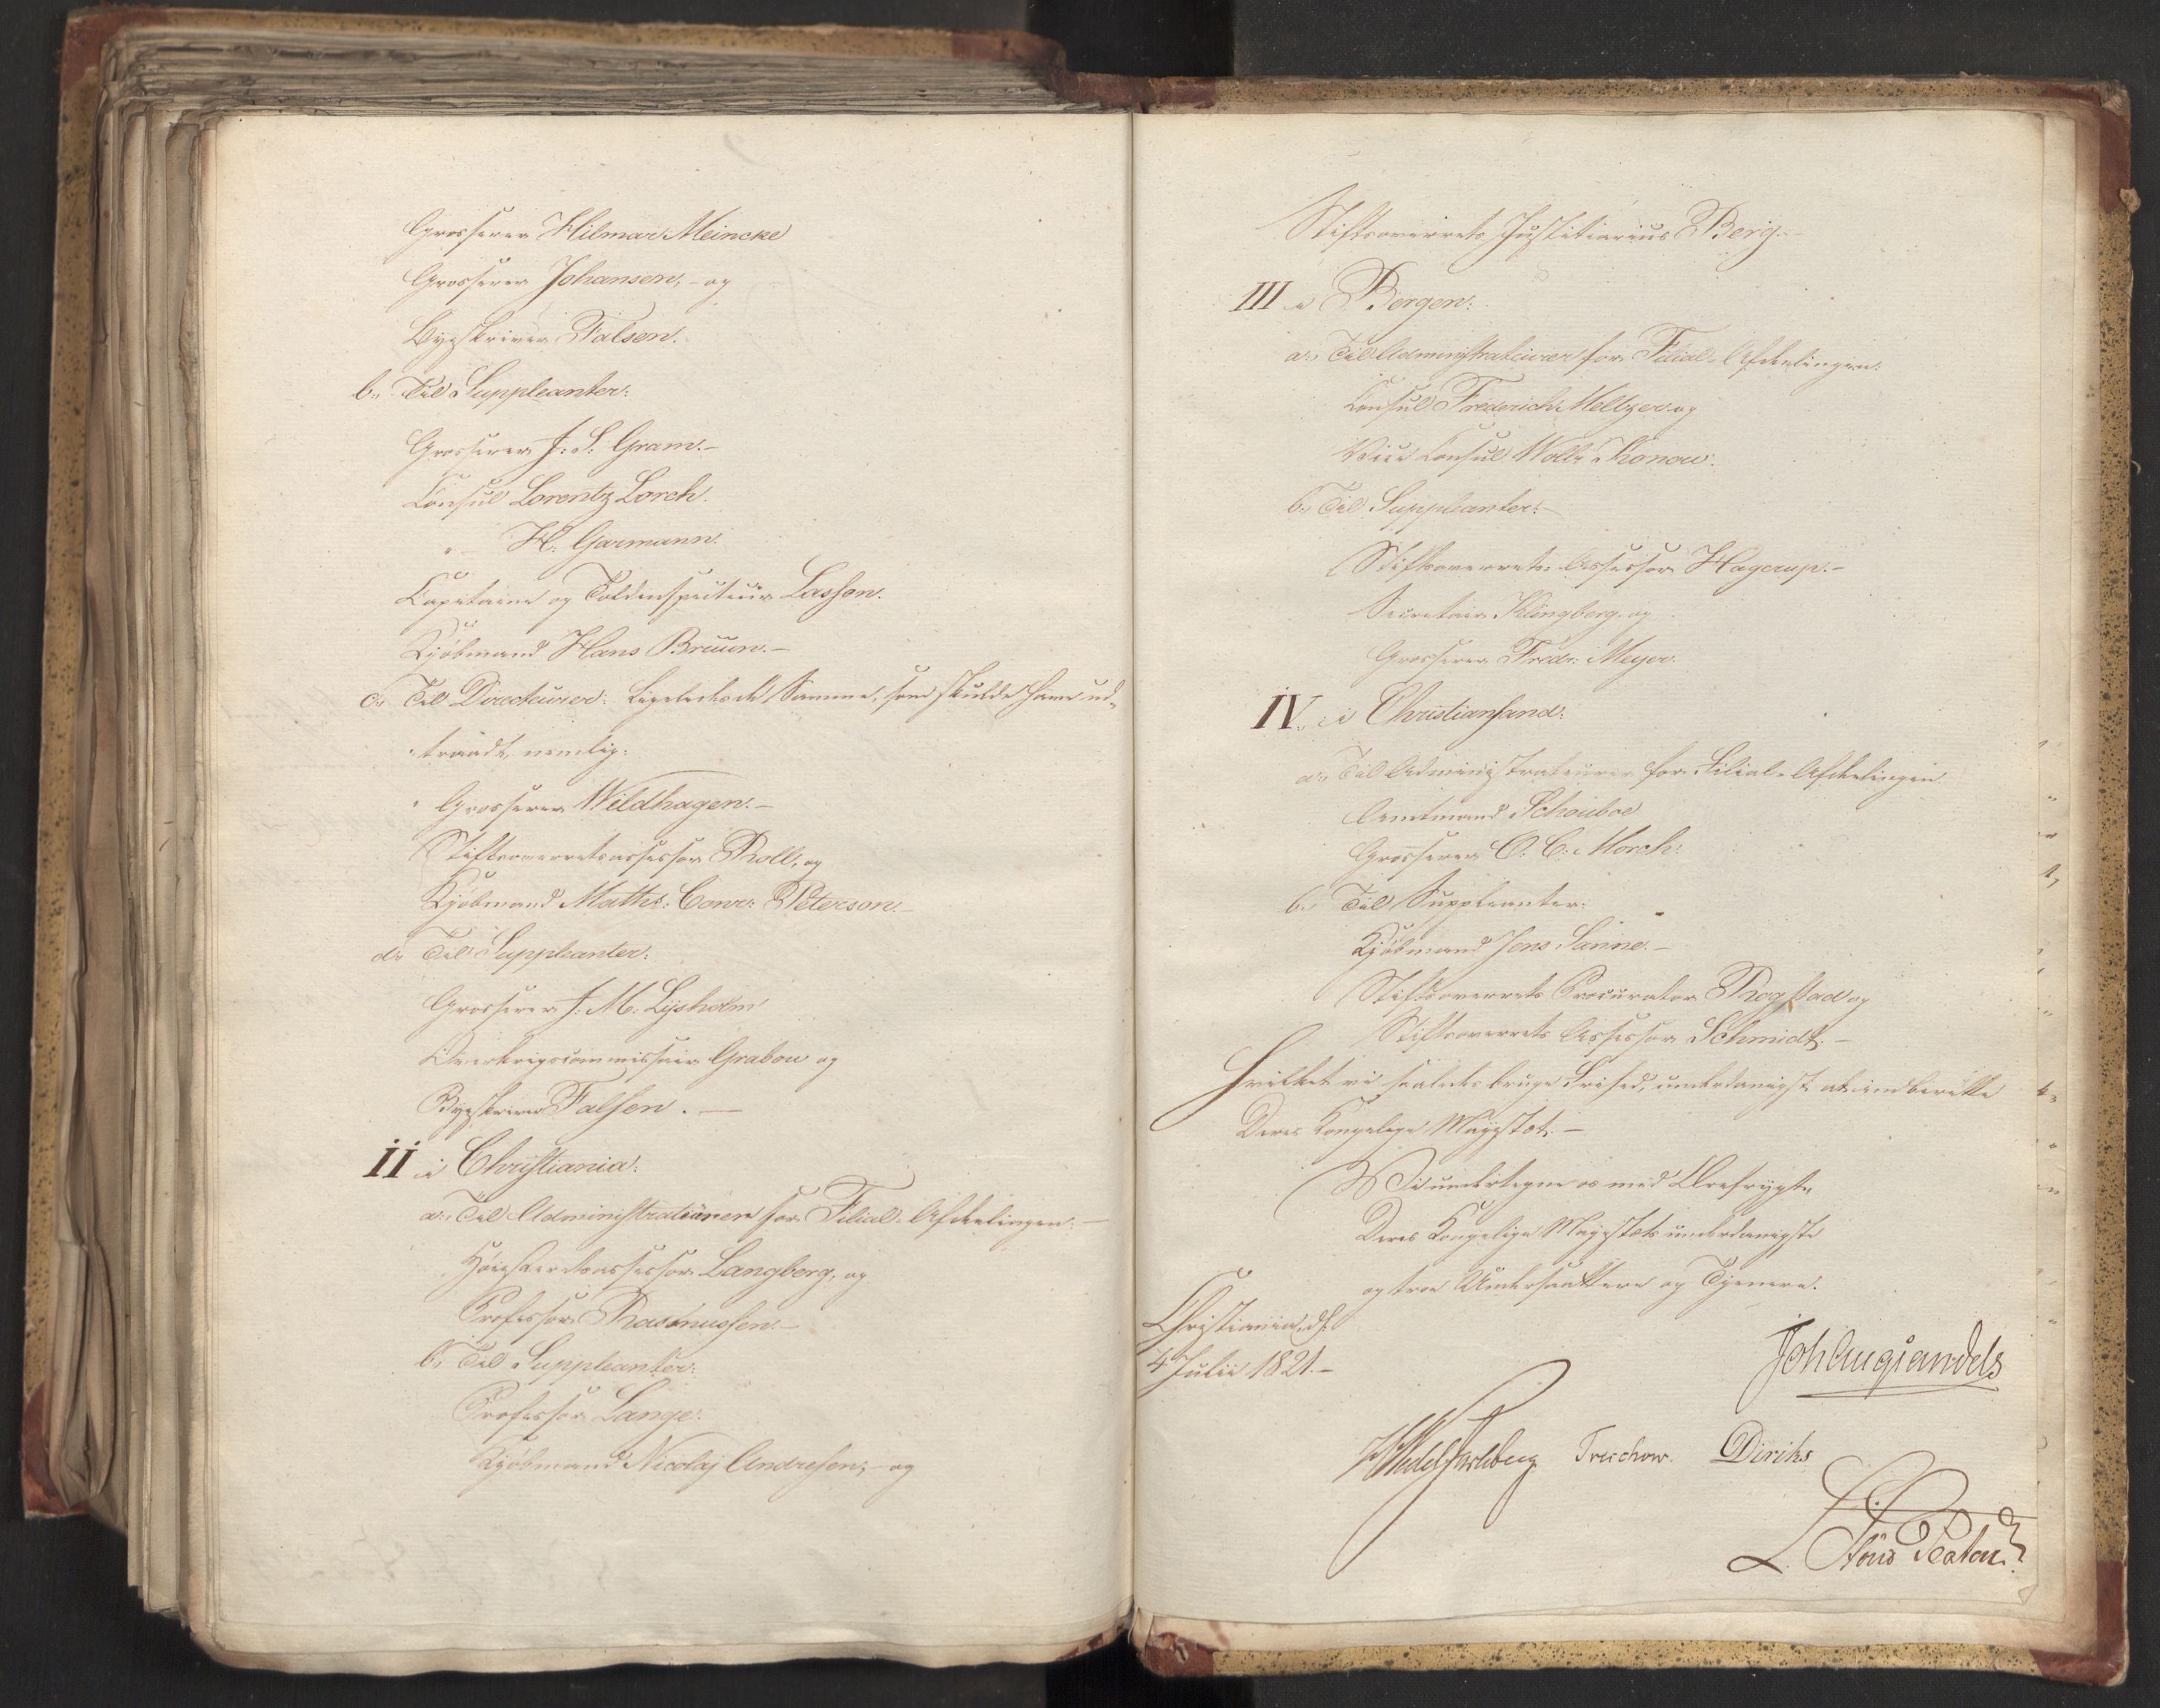 Grosserer Hilmar Meincke
Grosserer Johansen, - og
Byeskriver Falsen.
b., Til Suppleanter:
Grosserer J: S: Gram. -
Consul Lorentz Lorch.
" H: Garmann.
Capitaine og Toldinspecteur Lasson.
Kjöbmand Hans Bruun. -
c., Til Directeurer: ligeledes de Samme, som skulde have ud-
traadt, nemlig:
Grosserer Wildhagen. -
Stiftsoverretsassessor Roll, og
Kjöbmand Matths: Conr: Peterson. -
d., Til Suppleanter:
Grosserer J: M: Lysholm
Overkrigscommissair Grabow og
Byeskriver Falsen. -
II i Christiania:
a., Til Administrateurer for Filial-Afdeelingen. -
Höiesteretsassessor Langberg, og
Professor Rasmussen. -
b., Til Suppleanter:
Professor Lange.
Kjöbmand Nicolaj Andresen, - og
Stiftsoverrets Justitiarius Berg. -
III i Bergen:
a., Til Administrateurer for Filial-Afdeelingen:
Consul Frederich Meltzer og
Vice Consul Wollr Konow.
b., Til Suppleanter: -
Stiftsoverrets-Assessor Hagerup. -
Secretair Klingberg, og
Grosserer Fredr: Meyer.
IV. i Christiansand:
a., Til Administrateurer for Filial-Afdeelingen
Amtmand Schouboe
Grosserer O. C. Mørch.
b., Til Suppleanter:
Kjöbmand Jens Sanne. -
Stiftsoverrets Procurator Rogstad og
Stiftsoverrets Assessor Schmidt. -
Hvilket vi saaledes bruge Frihed, underdanigst at indberette
Deres Kongelige Majestet. -
Vi undertegne os med Ærefrygt,
Deres Kongelige Majestets underdanigste
og troe Undersaatter og Tjenere.
Christiania, d:
4 Julii 1821. -
Joh Aug Sandels
HWedel Jarlsberg Treschow. Diriks